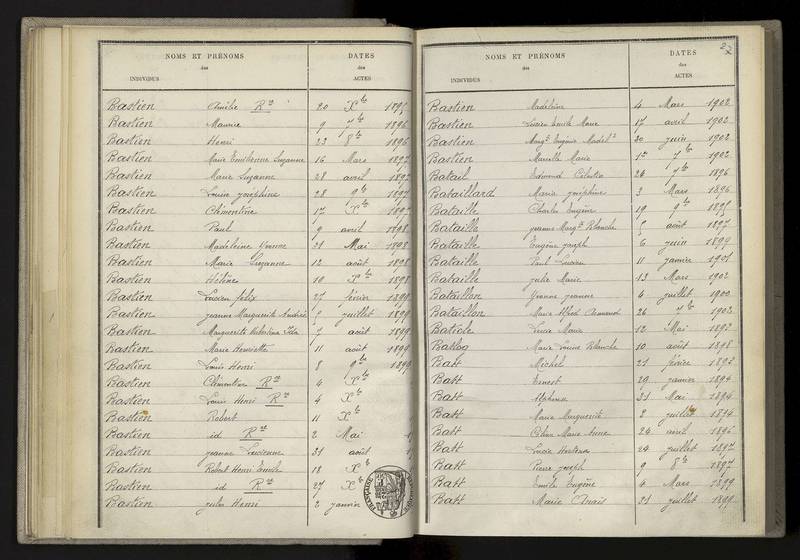 NOMS ET PRÉNOMS
des
INDIVIDUS
DATES
des
ACTES
Bastien Amélie Rᵒⁿ 20 Xᵇʳᵉ 1895
Bastien Maurice 9 7ᵇʳᵉ 1896
Bastien Henri 23 8ᵇʳᵉ 1896
Bastien Marie Emilienne Suzanne 16 Mars 1897
Bastien Marie Suzanne 28 avril 1897
Bastien Louise Joséphine 28 9ᵇʳᵉ 1897
Bastien Clémentine 17 Xᵇʳᵉ 1897
Bastien Paul 9 avril 1898
Bastien Madeleine Yvonne 31 Mai 1898
Bastien Marie Suzanne 12 août 1898
Bastien Hélène 10 Xᵇʳᵉ 1898
Bastien Lucien felix 27 février 1899
Bastien jeanne Marguerite 5 juillet 1899
Bastien Marguerite 7 août 1899
Bastien Marie Henriette 11 août 1899
Bastien Louis Henri 8 9ᵇʳᵉ 1899
Bastien Clémentine Rᵒⁿ 4 Xᵇʳᵉ
Bastien Louis Henri Rᵒⁿ 4 Xᵇʳᵉ
Bastien Robert 11 Xᵇʳᵉ
Bastien id Rᵒⁿ 2 Mai
Bastien jeanne Lucienne 31 août
Bastien Robert Henri Emile 18 Xᵇ
Bastien id Rᵒⁿ 27 Xᵇ
Bastien jules Henri 2 janvier
NOMS ET PRÉNOMS
des
INDIVIDUS
DATES
des
ACTES
22
Bastien Madeleine 4 Mars 1902
Bastien Lucien Emile Marie 17 avril 1902
Bastien Margᵗᵉ Eugénie 20 juin 1902
Bastien Marcelle Marie 1ᵉʳ 7ᵇʳᵉ 1902
Batail Edmond Célestin 26 7ᵇʳᵉ 1896
Bataillard Marie Joséphine 3 Mars 1896
Bataille Charles Eugène 19 9ᵇʳᵉ 1895
Bataille jeanne Margᵗᵉ Blanche 5 août 1897
Bataille Eugène joseph 6 juin 1899
Bataille Paul Lucien 11 janvier 1901
Bataille julie Marie 13 Mars 1902
Bataillon Yvonne jeanne 4 juillet 1900
Bataillon Marie Alfred Clemand 26 7ᵇʳᵉ 1902
Lucie Marie 12 Mai 1893
Marie Louise Blanche 10 août 1898
Batt Michel 21 février 1893
Batt Ernest 29 janvier 1894
Batt Alphonse 31 Mai 1894
Batt Marie Marguerite 2 juillet 1894
Batt Marie Anne 24 avril 1896
Batt Lucie Hortense 24 juillet 1897
Batt Pierre joseph 9 8ᵇʳᵉ 1897
Batt Emile Eugène 4 Mars 1899
Batt Marie Anais 31 juillet 1899